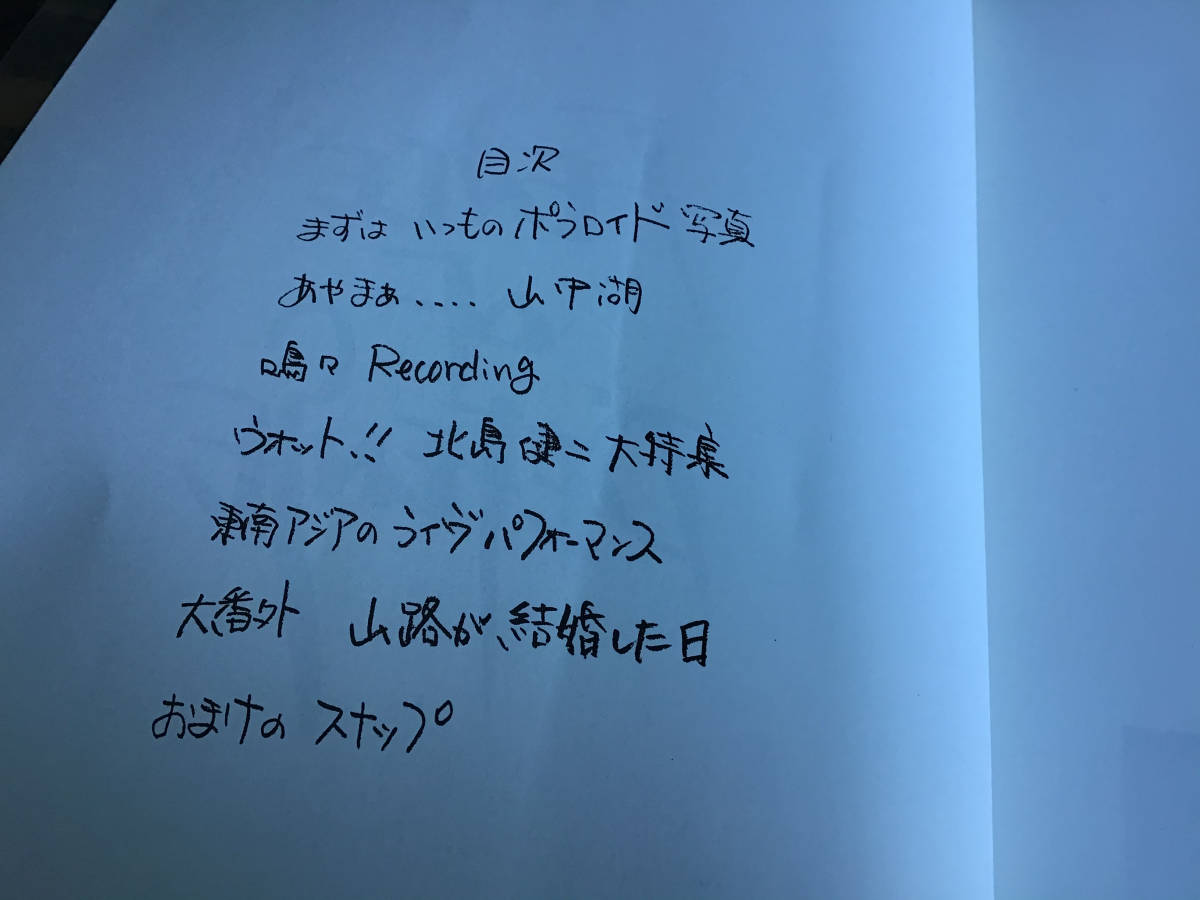 目次
まずは いつものポラロイド写真
あやまぁ.... 山中湖
鳴々 Recording
ウオット!! 北島健二大特集
東南アジアのライヴパフォーマンス
大番外 山路が、結婚した日
おまけの スナップ